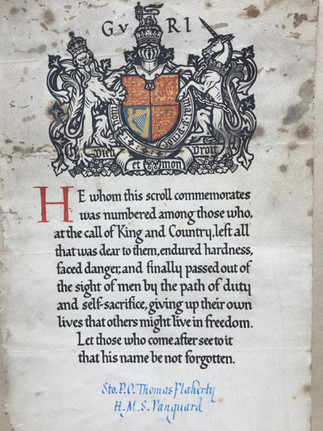 GV RI
Dieu et mon Droit
HE whom this scroll commemorates
was numbered among those who,
at the call of King and Country, left all
that was dear to them, endured hardness,
faced danger, and finally passed out of
the sight of men by the path of duty
and self-sacrifice, giving up their own
lives that others might live in freedom.
Let those who come after see to it
that his name be not forgotten.
Sto. P.O. Thomas Flaherty
H.M.S. Vanguard